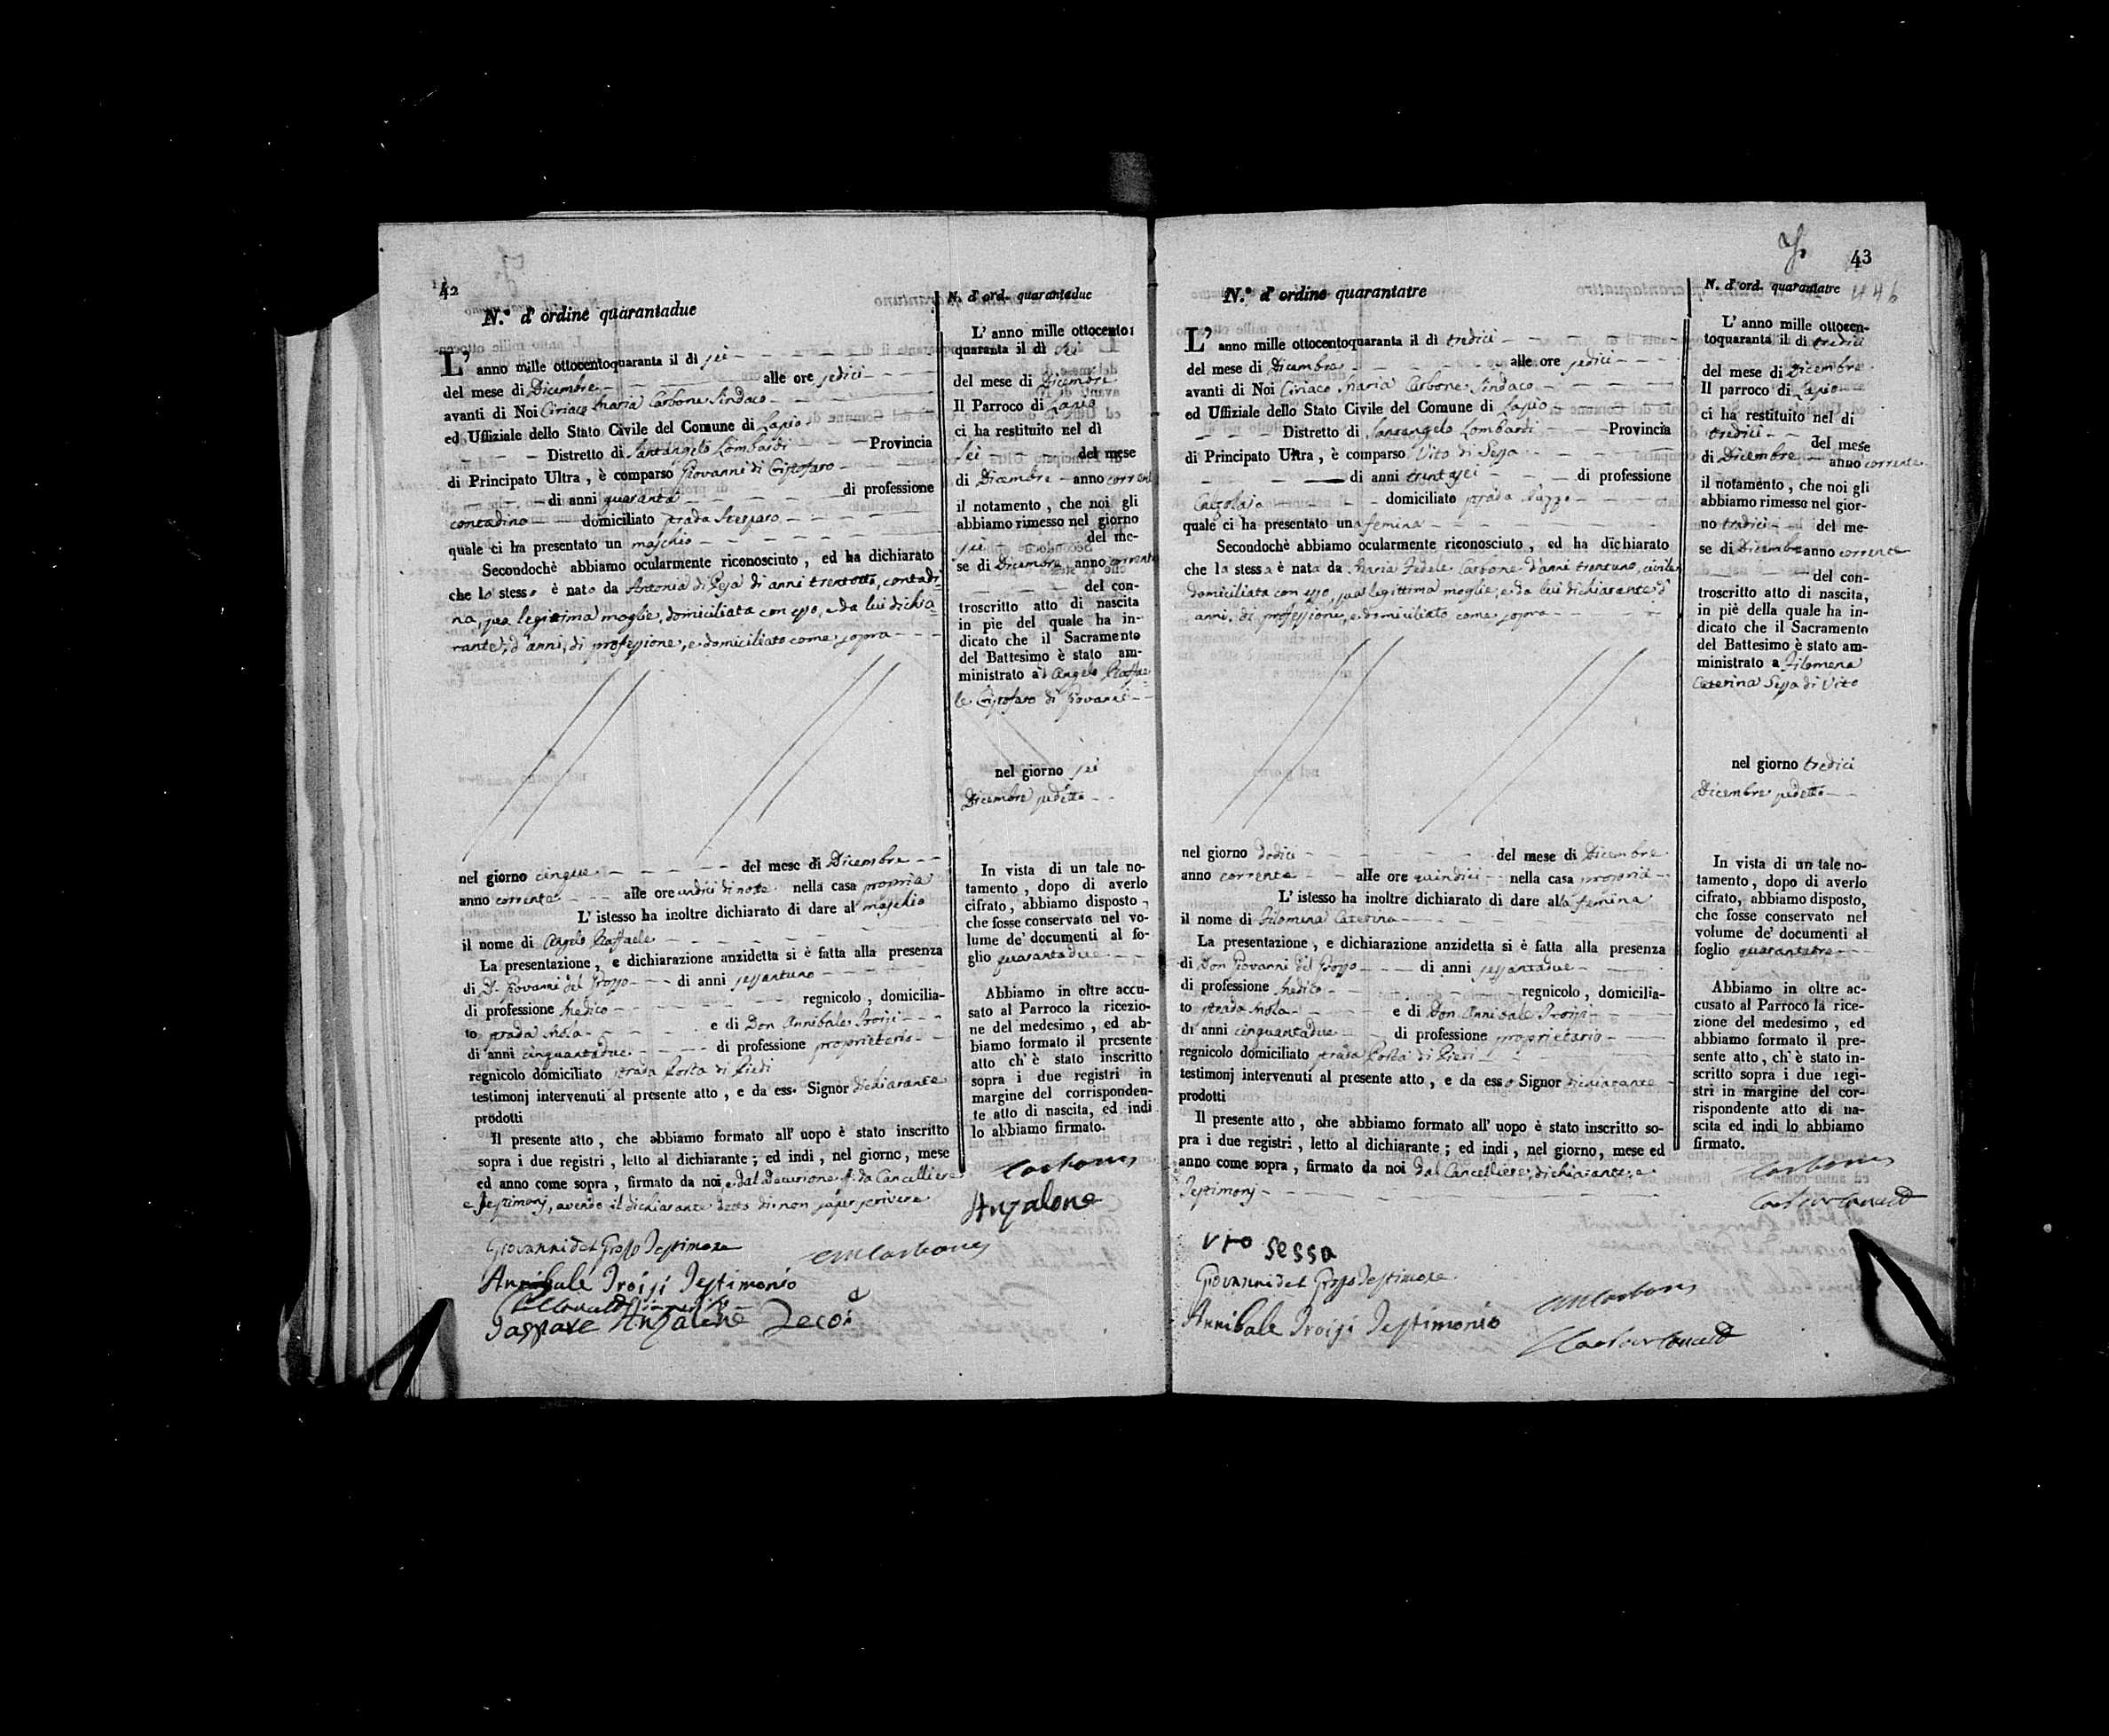 42
N.° d' ordine quarantadue
L' anno mille ottocentoquaranta il dì sei
del mese di Dicembre alle ore sedici
avanti di Noi Ciriaco Maria Carbone Sindaco
ed Uffiziale dello Stato Civile del Comune di Lapio
Distretto di Santangelo Lombardi Provincia
di Principato Ultra , è comparso Giovanni di Cristofaro
di anni quaranta di professione
contadino domiciliato strada
quale ci ha presentato un maschio
Secondochè abbiamo ocularmente riconosciuto , ed ha dichiarato
che lo stesso è nato da Antonia di di anni trentotto, contadi-
na, sua legittima moglie, domiciliata con esso, e da lui dichia-
rante, d'anni, di professione, e domiciliato come sopra
nel giorno cinque del mese di Dicembre
anno corrente alle ore undici di notte nella casa propria
L' istesso ha inoltre dichiarato di dare al maschio
il nome di Angelo Raffaele
La presentazione , e dichiarazione anzidetta si è fatta alla presenza
di D. Giovanni del Grosso di anni sessantuno
di professione Medico regnicolo , domicilia-
to strada Mola e di Don Annibale Troisi
di anni cinquantadue di professione proprietario
regnicolo domiciliato strada Porta di Piedi
testimonj intervenuti al presente atto , e da esso Signor dichiarante
prodotti
Il presente atto , che abbiamo formato all' uopo è stato inscritto
sopra i due registri , letto al dichiarante ; ed indi , nel giorno, mese
ed anno come sopra , firmato da noi, e dal Decurione f. da Cancelliere
e Testimonj, avendo il dichiarante detto di non saper scrivere
Giovanni del Grosso Testimone
CMCarbone
Annibale Troisi Testimonio
Gaspare Anzalone
N. d' ord. quarantadue
L' anno mille ottocento
quaranta il dì sei
del mese di Dicembre
Il Parroco di Lapio
ci ha restituito nel dì
sei del mese
di Dicembre anno corrente
il notamento , che noi gli
abbiamo rimesso nel giorno
sei del me-
se di Dicembre anno corrente
del con-
troscritto atto di nascita
in pie del quale ha in-
dicato che il Sacramento
del Battesimo è stato am-
ministrato ad Angelo Raffae-
le Cristofaro di Giovanni
nel giorno sei
Dicembre sudetto
In vista di un tale no-
tamento , dopo di averlo
cifrato , abbiamo disposto ,
che fosse conservato nel vo-
lume de' documenti al fo-
glio quarantadue
Abbiamo in oltre accu-
sato al Parroco la ricezio-
ne del medesimo , ed ab-
biamo formato il presente
atto ch' è stato inscritto
sopra i due registri in
margine del corrisponden-
te atto di nascita, ed indi
lo abbiamo firmato.
Carbone
Anzalone
43
N.° d' ordine quarantatre
L' anno mille ottocentoquaranta il dì tredici
del mese di Dicembre alle ore sedici
avanti di Noi Ciriaco Maria Carbone Sindaco
ed Uffiziale dello Stato Civile del Comune di Lapio
Distretto di Santangelo Lombardi Provincia
di Principato Ultra , è comparso Vito di Sessa
di anni trentasei di professione
Calzolajo domiciliato strada
quale ci ha presentato una femina
Secondochè abbiamo ocularmente riconosciuto , ed ha dichiarato
che la stessa è nata da Maria Fedele Carbone d'anni trentuno, civile
domiciliata con esso, sua legittima moglie, e da lui dichiarante d'
anni, di professione, e domiciliato come sopra
nel giorno dodici del mese di Dicembre
anno corrente alle ore quindici nella casa propria
L' istesso ha inoltre dichiarato di dare alla femina
il nome di Filomena Caterina
La presentazione , e dichiarazione anzidetta si è fatta alla presenza
di Don Giovanni del Grosso di anni sessantadue
di professione Medico regnicolo , domicilia-
to strada Mola e di Don Annibale Troisi
di anni cinquantadue di professione proprietario
regnicolo domiciliato strada Porta di Piedi
testimonj intervenuti al presente atto , e da esso Signor dichiarante
prodotti
Il presente atto , che abbiamo formato all' uopo è stato inscritto so-
pra i due registri , letto al dichiarante ; ed indi , nel giorno, mese ed
anno come sopra , firmato da noi dal Cancelliere, dichiarante, e
Testimonj
Vito Sessa
Giovanni del Grosso Testimone
CMCarbone
Annibale Troisi Testimonio
N. d' ord. quarantatre
L' anno mille ottocen-
toquaranta il dì tredici
del mese di Dicembre
Il parroco di Lapio
ci ha restituito nel di
tredici del mese
di Dicembre anno corrente
il notamento , che noi gli
abbiamo rimesso nel gior-
no tredici del me-
se di Dicembre anno corrente
del con-
troscritto atto di nascita,
in piè della quale ha in-
dicato che il Sacramento
del Battesimo è stato am-
ministrato a Filomena
Caterina Sessa di Vito
nel giorno tredici
Dicembre sudetto
In vista di un tale no-
tamento, dopo di averlo
cifrato, abbiamo disposto,
che fosse conservato nel
volume de' documenti al
foglio quarantatre
Abbiamo in oltre ac-
cusato al Parroco la rice-
zione del medesimo , ed
abbiamo formato il pre-
sente atto, ch' è stato in-
scritto sopra i due regi-
stri in margine del cor-
rispondente atto di na-
scita ed indi lo abbiamo
firmato.
Carbone